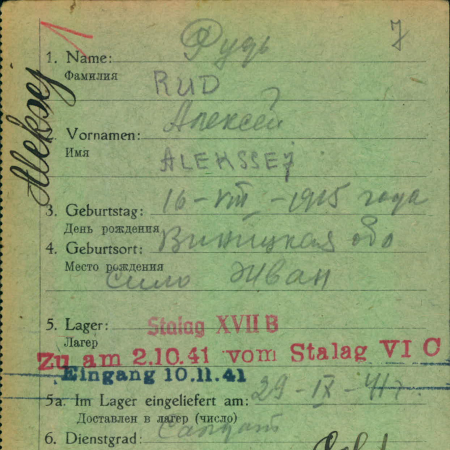 1
7
Рудь
1. Name:
Фамилия
RUD
Алексей
2. Vornamen:
Имя
ALEKSSEJ
Aleksej
16-VIII-1915 года
3. Geburtstag:
День рождения
4. Geburtsort: Виницкая обо
Место рождения
Сило Жван
5. Lager: Stalag XVII B
Лагер
Zu am 2.10.41 vom Stalag VI C
Eingang 10.11.41
5a. Im Lager eingeliefert am: 29-IX-41г.
Доставлен в лагер (число)
6. Dienstgrad: